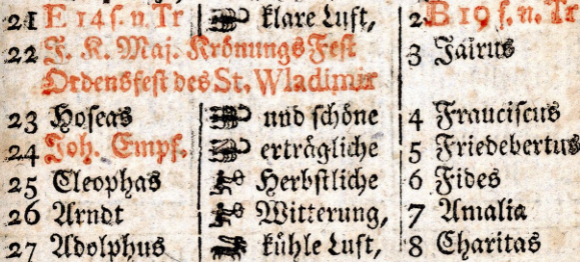 21 E 14 s. n. Tr klare Luft, 2 B 19 s. n. Tr
22 J. K. Maj. Krönungs Fest 3 Jairus
Ordensfest des St. Wladimir
23 Hoseas und schöne 4 Franciscus
24 Joh. Empf. erträgliche 5 Friedebertus
25 Cleophas Herbstliche 6 Fides
26 Arndt Witterung, 7 Amalia
27 Adolphus kühle Luft, 8 Charitas